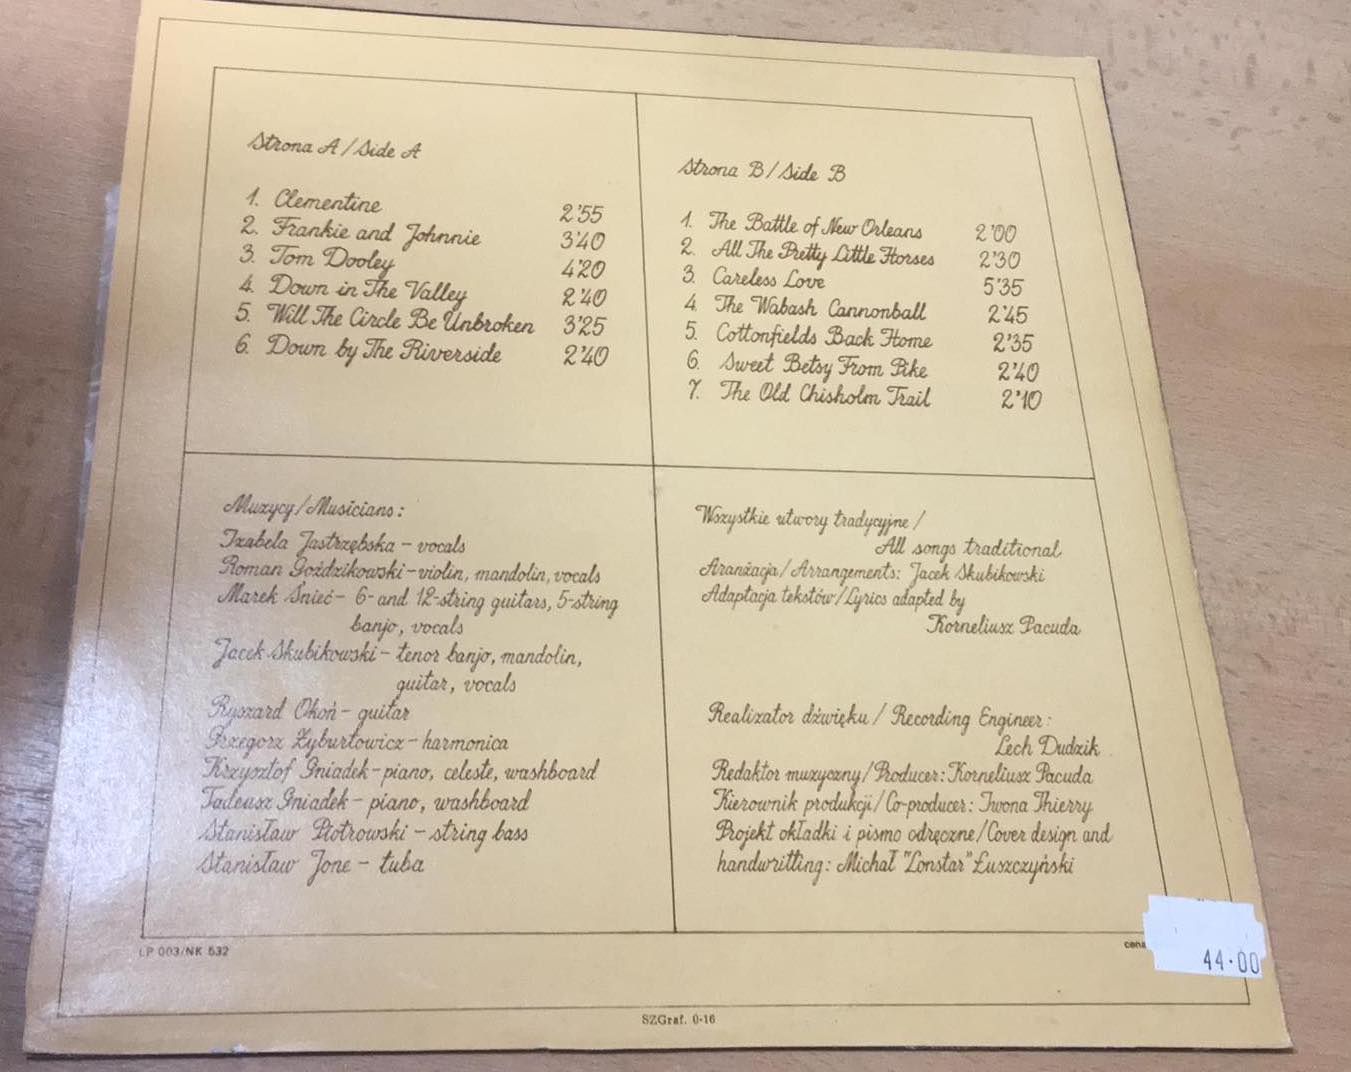 Strona A / Side A
1. Clementine 2'55
2. Frankie and Johnnie 3'40
3. Tom Dooley 4'20
4. Down in The Valley 2'40
5. Will The Circle Be Unbroken 3'25
6. Down by The Riverside 2'40
Strona B / Side B
1. The Battle of New Orleans 2'00
2. All The Pretty Little Horses 2'30
3. Careless Love 5'35
4. The Wabash Cannonball 2'45
5. Cottonfields Back Home 2'35
6. Sweet Betsy From Pike 2'40
7. The Old Chisholm Trail 2'10
Muzycy/Musicians:
Izabela Jastrzębska - vocals
Roman Goździkowski - violin, mandolin, vocals
Marek Śnieć - 6- and 12-string guitars, 5-string
banjo, vocals
Jacek Skubikowski - tenor banjo, mandolin,
guitar, vocals
Ryszard Okoń - guitar
Grzegorz Żyburtowicz - harmonica
Krzysztof Gniadek - piano, celeste, washboard
Tadeusz Gniadek - piano, washboard
Stanisław Piotrowski - string bass
Stanisław Jone - tuba
Wszystkie utwory tradycyjne /
All songs traditional
Aranżacja / Arrangements: Jacek Skubikowski
Adaptacja tekstów / Lyrics adapted by
Korneliusz Pacuda
Realizator dźwięku / Recording Engineer:
Lech Dudzik
Redaktor muzyczny / Producer: Korneliusz Pacuda
Kierownik produkcji / Co-producer: Iwona Thierry
Projekt okładki i pismo odręczne / Cover design and
handwritting: Michał "Lonstar" Łuszczyński
LP 003/NK 532
cena
44.00
SZGraf. 0-16